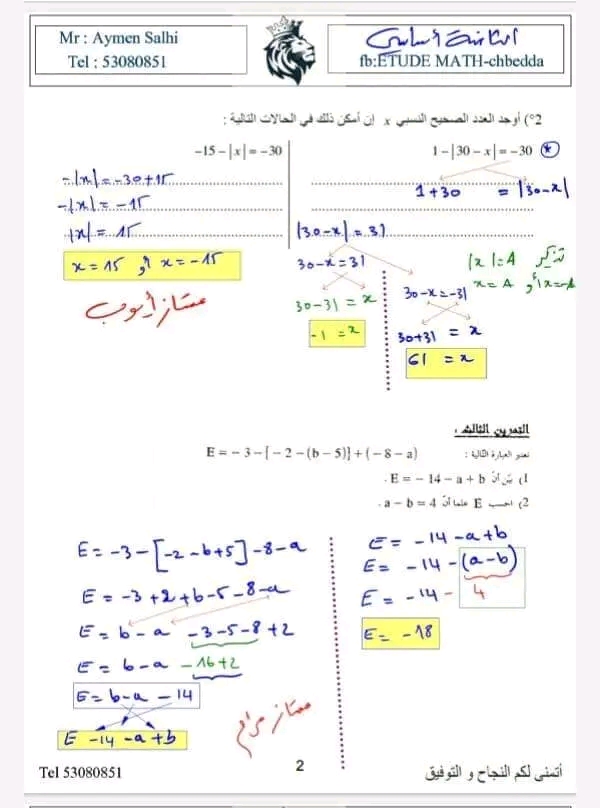 Mr : Aymen Salhi
Tel : 53080851
الثامنة أساسي
fb:ETUDE MATH-chbedda
2°) أوجد العدد الصحيح النسبي x إن أمكن ذلك في الحالات التالية :
1 – |30 – x| = –30 *
1+30 = |30-x|
|30-x| = 31
30-x=31
30-31 = x
-1 = x
30-x=-31
30+31 = x
61 = x
تذكير |x|=A
x=A أو x=-A
–15 – |x| = –30
-|x| = -30+15
-|x| = -15
|x| = 15
x = 15 أو x = -15
ممتاز أيوب
التمرين الثالث :
نعتبر العبارة التالية : E = – 3 – [ – 2 – (b – 5)] + (– 8 – a)
1) بيّن أنّ E = – 14 – a + b .
2) احسب E علما أنّ a – b = 4 .
E = -3 - [-2 -b+5] -8 -a
E = -3 +2 +b -5 -8 -a
E = b - a -3 -5 -8 +2
E = b - a -16 +2
E = b - a - 14
E -14 -a +b
ممتاز مرام
E = -14 -a+b
E = -14 -(a-b)
E = -14 - 4
E = -18
Tel 53080851
2
أتمنى لكم النجاح و التوفيق